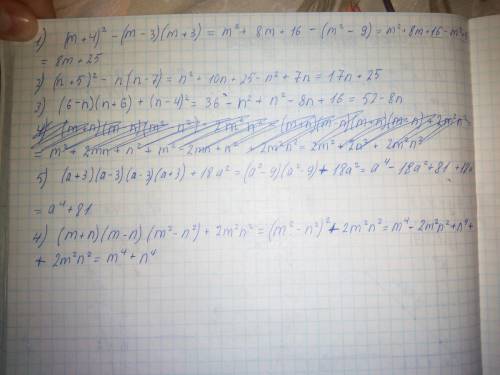 1) (m+4)² - (m-3)(m+3) = m² + 8m + 16 - (m² - 9) = m² + 8m + 16 - m² + 9
= 8m + 25
2) (n+5)² - n(n-7) = n² + 10n + 25 - n² + 7n = 17n + 25
3) (6-n)(n+6) + (n-4)² = 36 - n² + n² - 8n + 16 = 52 - 8n
= m² + 2mn + n² + m² - 2mn + n² + 2m²n² = 2m² + 2n² + 2m²n²
5) (a+3)(a-3)(a-3)(a+3) + 18a² = (a²-9)(a²-9) + 18a² = a⁴ - 18a² + 81 + 18a
= a⁴ + 81
4) (m+n)(m-n)(m²-n²) + 2m²n² = (m²-n²)² + 2m²n² = m⁴ - 2m²n² + n⁴ +
+ 2m²n² = m⁴ + n⁴